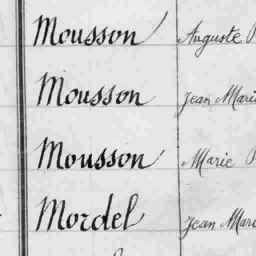 Mousson Auguste
Mousson Jean Marie
Mousson Marie
Mordel Jean Marie